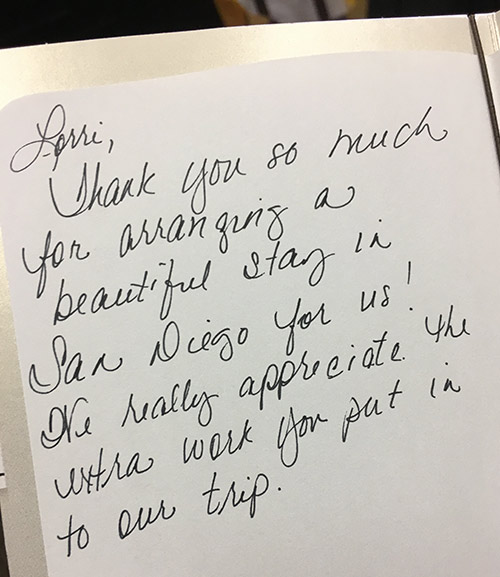 Lorri,
Thank you so much
for arranging a
beautiful stay in
San Diego for us!
We really appreciate the
extra work you put in
to our trip.